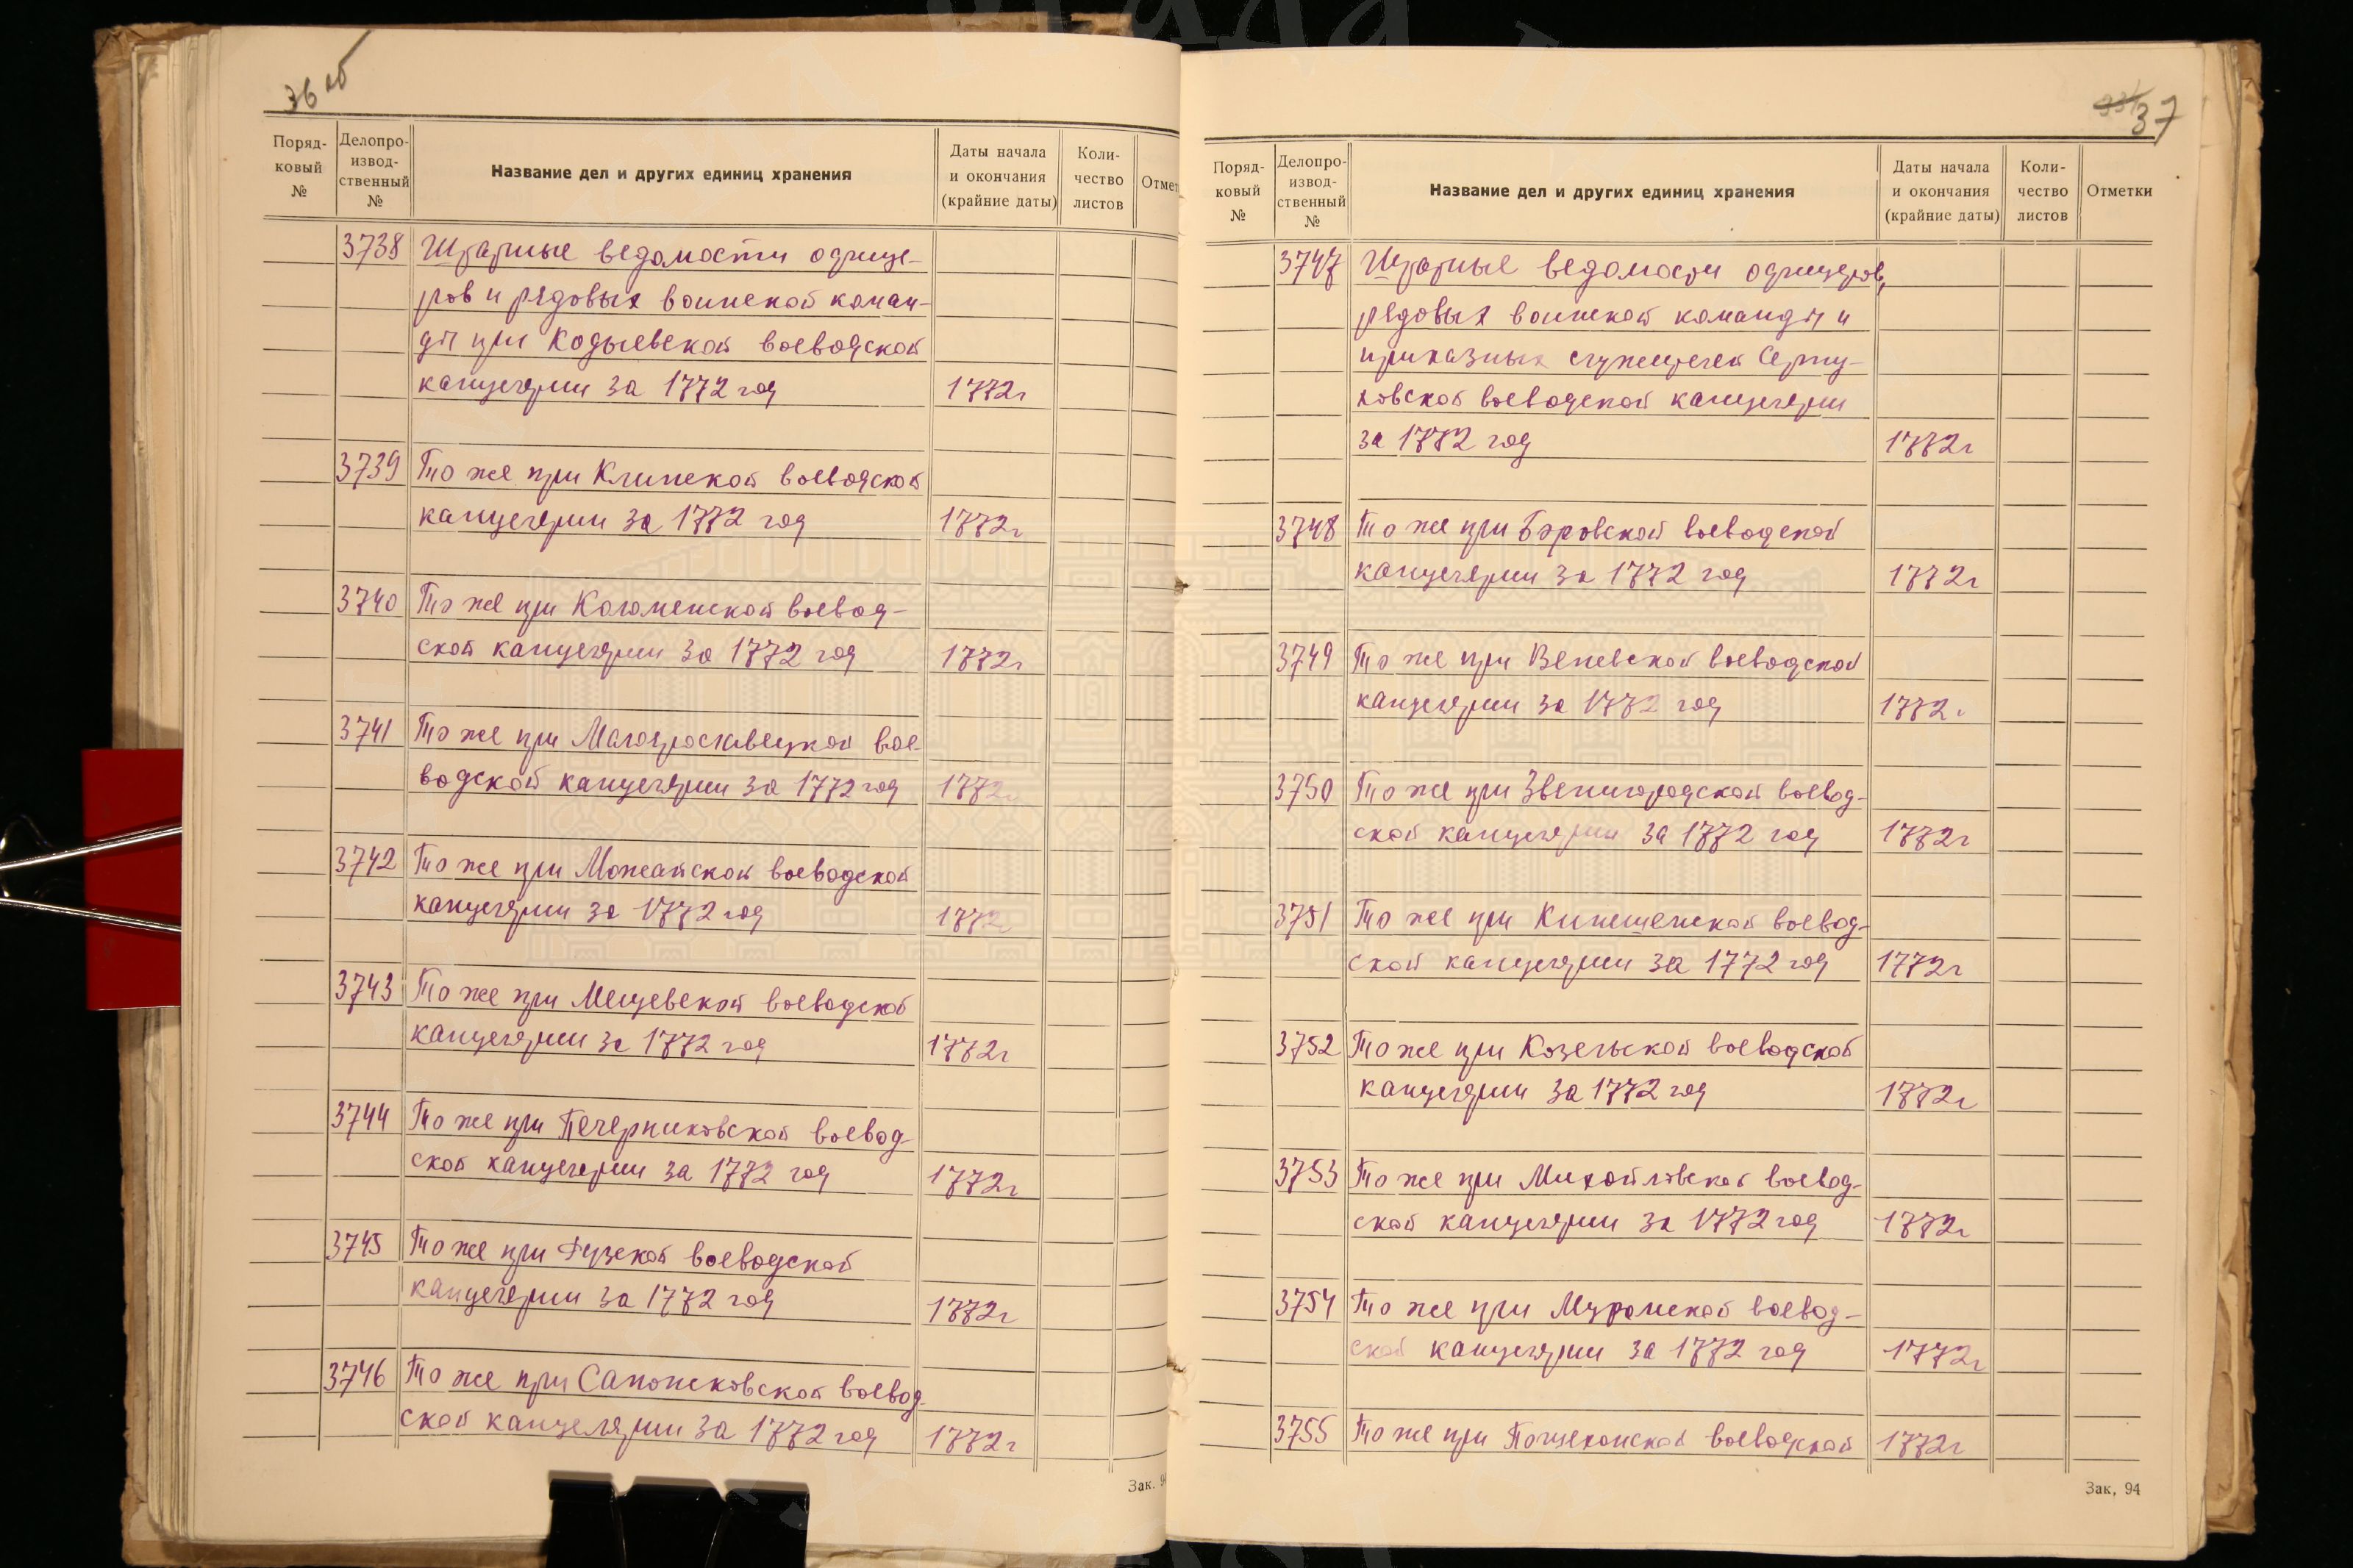 36 об
Поряд-
ковый
№
Делопро-
извод-
ственный
№
Название дел и других единиц хранения
Даты начала
и окончания
(крайние даты)
Коли-
чество
листов
Отмет
3738 Штатные ведомости офице-
ров и рядовых воинской коман-
ды при Кадыевской воеводской
канцелярии за 1772 год 1772г
3739 То же при Клинской воеводской
канцелярии за 1772 год 1772г
3740 То же при Коломенской воевод-
ской канцелярии за 1772 год 1772г
3741 То же при Малоярославецкой вое-
водской канцелярии за 1772 год 1772г
3742 То же при Можайской воеводской
канцелярии за 1772 год 1772г
3743 То же при Мещевской воеводской
канцелярии за 1772 год 1772г
3744 То же при Печерниковской воевод-
ской канцелярии за 1772 год 1772г
3745 То же при Рузской воеводской
канцелярии за 1772 год 1772г
3746 То же при Сапожковской воевод-
ской канцелярии за 1772 год 1772г
Зак. 94
37
Поряд-
ковый
№
Делопро-
извод-
ственный
№
Название дел и других единиц хранения
Даты начала
и окончания
(крайние даты)
Коли-
чество
листов
Отметки
3747 Штатные ведомости офицеров,
рядовых воинской команды и
приказных служителей Серпу-
ховской воеводской канцелярии
за 1772 год 1772г
3748 То же при Боровской воеводской
канцелярии за 1772 год 1772г
3749 То же при Веневской воеводской
канцелярии за 1772 год 1772г
3750 То же при Звенигородской воевод-
ской канцелярии за 1772 год 1772г
3751 То же при Кинешемской воевод-
ской канцелярии за 1772 год 1772г
3752 То же при Козельской воеводской
канцелярии за 1772 год 1772г
3753 То же при Михайловской воевод-
ской канцелярии за 1772 год 1772г
3754 То же при Муромской воевод-
ской канцелярии за 1772 год 1772г
3755 То же при Пошехонской воеводской 1772г
Зак, 94